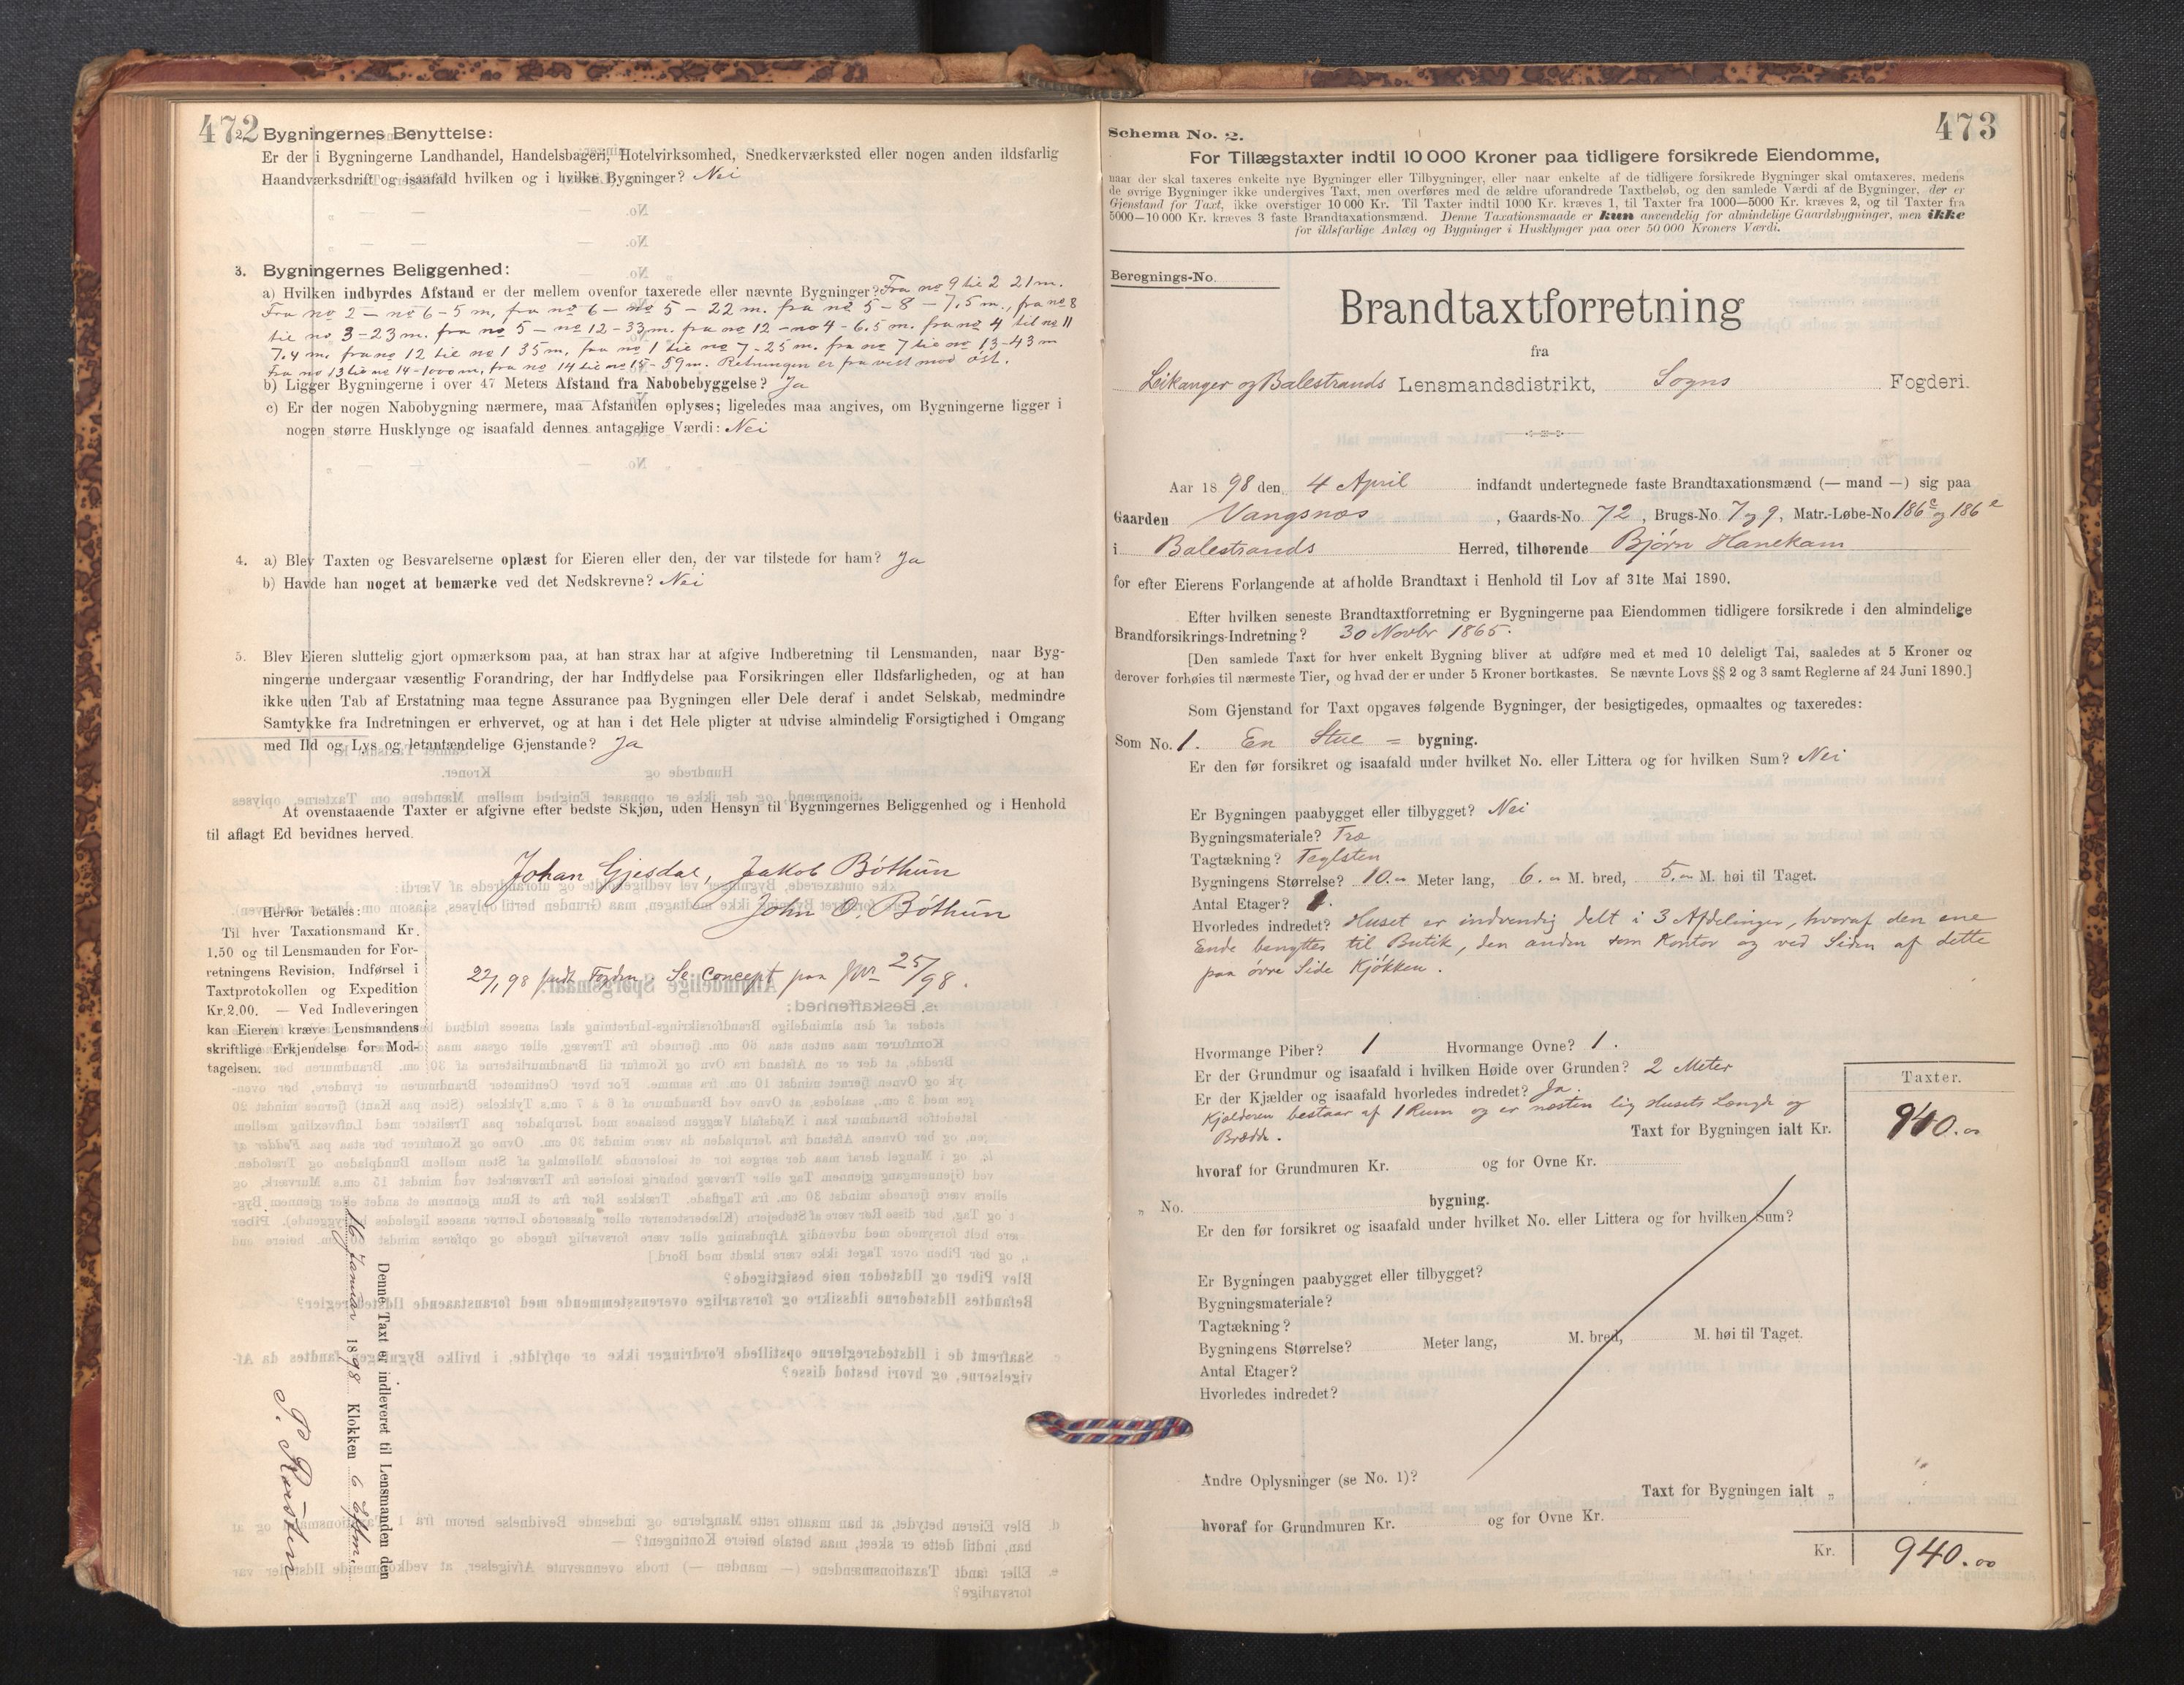 472
2. Bygningernes Benyttelse:
Er der i Bygningerne Landhandel, Handelsbageri, Hotelvirksomhed, Snedkerværksted eller nogen anden ildsfarlig
Haandværksdrift og isaafald hvilken og i hvilke Bygninger? Nei
3. Bygningernes Beliggenhed:
a) Hvilken indbyrdes Afstand er der mellem ovenfor taxerede eller nævnte Bygninger? Fra no 9 til 2 21 m.
Fra no 2 – no 6 – 5 m, fra no 6 – no 5 – 22 m. fra no 5 – 8 – 7,5 m., fra no 8
til no 3 – 23 m. fra no 5 – no 12 – 33 m. fra no 12 – no 4 – 6.5 m. fra no 4 til no 11
7.4 m. fra no 12 til no 1 35 m, fra no 1 til no 7 - 25 m. fra no 7 til no 13 - 43 m
Fra no 13 til no 14 - 1000 m, fra no 14 til no 15 - 59 m. Retningen er fra vest mod øst.
b) Ligger Bygningerne i over 47 Meters Afstand fra Nabobebyggelse? Ja
c) Er der nogen Nabobygning nærmere, maa Afstanden oplyses; ligeledes maa angives, om Bygningerne ligger i
nogen større Husklynge og isaafald dennes antagelige Værdi: Nei
4. a) Blev Taxten og Besvarelserne oplæst for Eieren eller den, der var tilstede for ham? Ja
b) Havde han noget at bemærke ved det Nedskrevne? Nei
5. Blev Eieren sluttelig gjort opmærksom paa, at han strax har at afgive Indberetning til Lensmanden, naar Byg-
ningerne undergaar væsentlig Forandring, der har Indflydelse paa Forsikringen eller Ildsfarligheden, og at han
ikke uden Tab af Erstatning maa tegne Assurance paa Bygningen eller Dele deraf i andet Selskab, medmindre
Samtykke fra Indretningen er erhvervet, og at han i det Hele pligter at udvise almindelig Forsigtighed i Omgang
med Ild og Lys og letantændelige Gjenstande? Ja
At ovenstaaende Taxter er afgivne efter bedste Skjøn, uden Hensyn til Bygningernes Beliggenhed og i Henhold
til aflagt Ed bevidnes herved.
Johan Gjesdal, Jakob Bøthun
John O. Bøthun
Herfor betales:
Til hver Taxationsmand Kr.
1.50 og til Lensmanden for For-
retningens Revision, Indførsel i
Taxtprotokollen og Expedition
Kr. 2.00. — Ved Indleveringen
kan Eieren kræve Lensmandens
skriftlige Erkjendelse for Mod-
tagelsen.
22/1 98 sendt Fogden. Se Concept paa 25/98.
Denne Taxt er indleveret til Lensmanden den
16 Januar 1898 Klokken 6 Eftm.
473
Schema No. 2.
For Tillægstaxter indtil 10 000 Kroner paa tidligere forsikrede Eiendomme,
naar der skal taxeres enkelte nye Bygninger eller Tilbygninger, eller naar enkelte af de tidligere forsikrede Bygninger skal omtaxeres, medens
de øvrige Bygninger ikke undergives Taxt, men overføres med de ældre uforandrede Taxtbeløb, og den samlede Værdi af de Bygninger, der er
Gjenstand for Taxt, ikke overstiger 10 000 Kr. Til Taxter indtil 1000 Kr. kræves 1, til Taxter fra 1000—5000 Kr. kræves 2, og til Taxter fra
5000—10 000 Kr. kræves 3 faste Brandtaxationsmænd. Denne Taxationsmaade er kun anvendelig for almindelige Gaardsbygninger, men ikke
for ildsfarlige Anlæg og Bygninger i Husklynger paa over 50 000 Kroners Værdi.
Beregnings-No.
Brandtaxtforretning
fra
Leikanger og Balestrands Lensmandsdistrikt, Sogns Fogderi.
Aar 1898 den 4 April indfandt undertegnede faste Brandtaxationsmænd (— mand —) sig paa
Gaarden Vangsnæs, Gaards-No. 72, Brugs-No. 7 og 9, Matr.-Løbe-No 186 c og 186 e
i Balestrands Herred, tilhørende Bjørn Hanekam
for efter Eierens Forlangende at afholde Brandtaxt i Henhold til Lov af 31te Mai 1890.
Efter hvilken seneste Brandtaxtforretning er Bygningerne paa Eiendommen tidligere forsikrede i den almindelige
Brandforsikrings-Indretning? 30 Novbr 1865.
[Den samlede Taxt for hver enkelt Bygning bliver at udføre med et med 10 deleligt Tal, saaledes at 5 Kroner og
derover forhøies til nærmeste Tier, og hvad der er under 5 Kroner bortkastes. Se nævnte Lovs §§ 2 og 3 samt Reglerne af 24 Juni 1890.]
Som Gjenstand for Taxt opgaves følgende Bygninger, der besigtigedes, opmaaltes og taxeredes:
Som No. 1. En Stue = bygning.
Er den før forsikret og isaafald under hvilket No. eller Littera og for hvilken Sum? Nei
Er Bygningen paabygget eller tilbygget? Nei
Bygningsmateriale? Træ
Tagtækning? Teglsten
Bygningens Størrelse? 10.00 Meter lang, 6.00 M. bred, 5.00 M. høi til Taget.
Antal Etager? 1.
Hvorledes indredet? Huset er indvendig delt i 3 Afdelinger, hvoraf den ene
Ende benyttes til Butik, den anden som Kontor og ved Siden af dette
paa øvre Side Kjøkken.
Hvormange Piber? 1 Hvormange Ovne? 1.
Er der Grundmur og isaafald i hvilken Høide over Grunden? 2 Meter
Er der Kjælder og isaafald hvorledes indredet? Ja.
Kjælderen bestaar af 1 Rum og er næsten lig Husets Længde og
Brædde.
Taxter.
Taxt for Bygningen ialt Kr. 940.00
hvoraf for Grundmuren Kr. og for Ovne Kr.
„ No. bygning.
Er den før forsikret og isaafald under hvilket No. eller Littera og for hvilken Sum?
Er Bygningen paabygget eller tilbygget?
Bygningsmateriale?
Tagtækning?
Bygningens Størrelse? Meter lang, M. bred, M. høi til Taget.
Antal Etager?
Hvorledes indredet?
Andre Oplysninger (se No. 1)?
Taxt for Bygningen ialt „
hvoraf for Grundmuren Kr. og for Ovne Kr.
Kr. 940.00